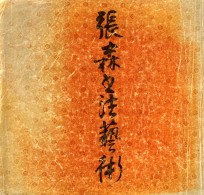 張森书法藝術